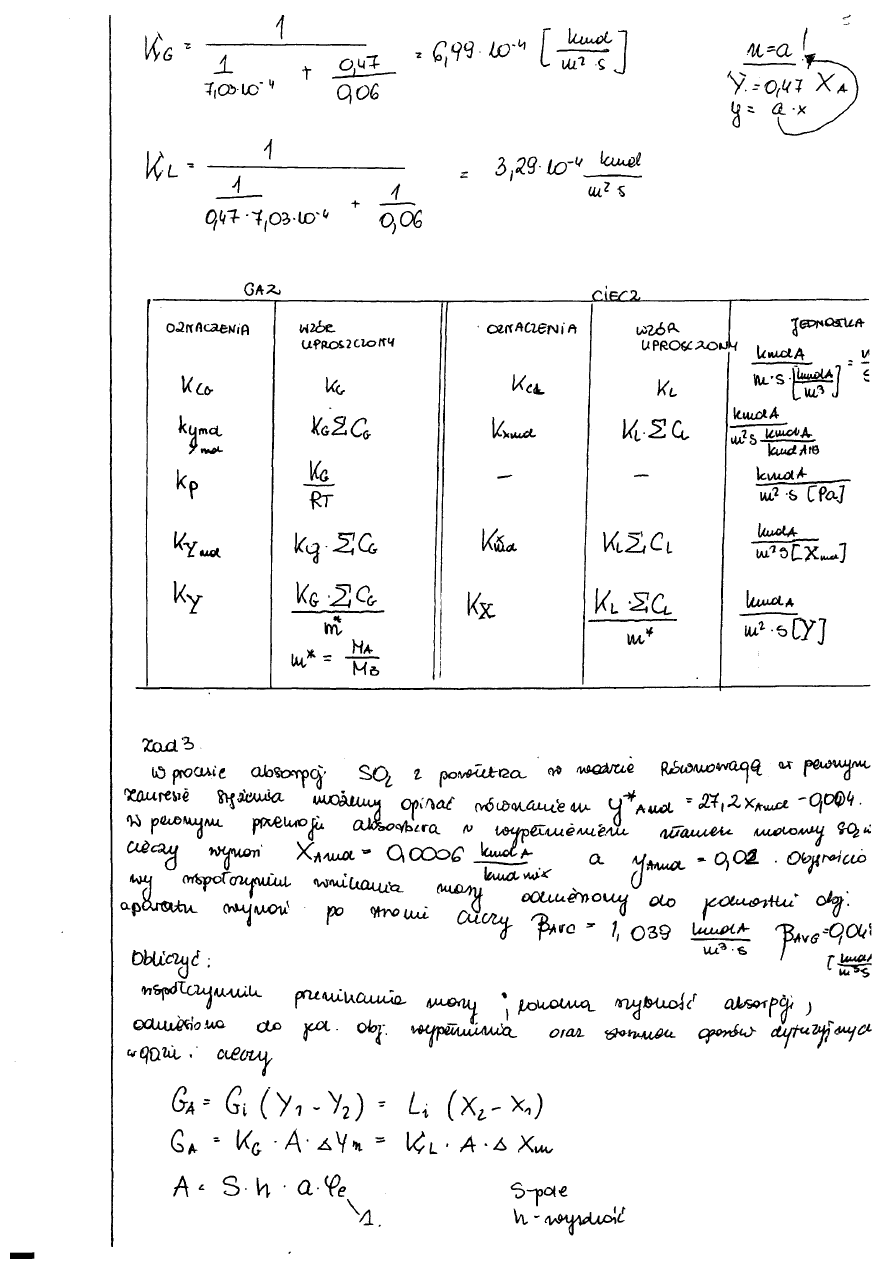 K_G = 1 / (1/(7,03·10⁻⁴) + 0,47/0,06) = 6,99·10⁻⁴ [kmol/m²·s]
m=a!
Y=0,47 X_A
y= a·x
K_L = 1 / (1/(0,47·7,03·10⁻⁴) + 1/0,06) = 3,29·10⁻⁴ kmol/m²s
GAZ CIECZ
OZNACZENIA WZÓR UPROSZCZONY OZNACZENIA WZÓR UPROSZCZONY JEDNOSTKA
K_CG K_G K_CL K_L kmolA / m·s·[kmolA/m³] =
k_ymol y_mol K_G ΣC_G K_xmol K_L·ΣC_L kmolA / m²s kmolA/kmolA+B
K_p K_G/RT – – kmolA / m²·s [Pa]
K_Ymol K_y·ΣC_G K_L ΣC_L kmolA / m²s[X_mol]
K_Y K_G·ΣC_G / m* K_X K_L·ΣC_L / m* kmolA / m²·s[Y]
m* = M_A/M_B
Zad 3
W procesie absorpcji SO₂ z powietrza w wodzie Równowagę w pewnym
zakresie stężenia możemy opisać równaniem y*_Amol = 27,2x_Amol - 0,004.
W pewnym przekroju absorbera z wypełnieniem ułamek molowy SO₂ w
cieczy wynosi X_Amol = 0,0006 kmolA/kmol mix a y_Amol = 0,02. Objętościo
wy współczynnik wnikania masy odniesiony do jednostki obj.
aparatu wynosi po stronie cieczy β_AVC = 1,039 kmolA/m³·s β_AVG = 0,04
Obliczyć:
współczynnik przenikania masy i lokalna szybkość absorpcji,
odniesiona do jed. obj. wypełnienia oraz stosunek oporów dyfuzyjnych
w gazie i cieczy
G_A = G_i (Y₁ - Y₂) = L_i (X₂ - X₁)
G_A = K_G · A · ΔY_m = K_L · A · Δ X_m
A = S·h · a·φ_e
1.
S-pole
h-wysokość